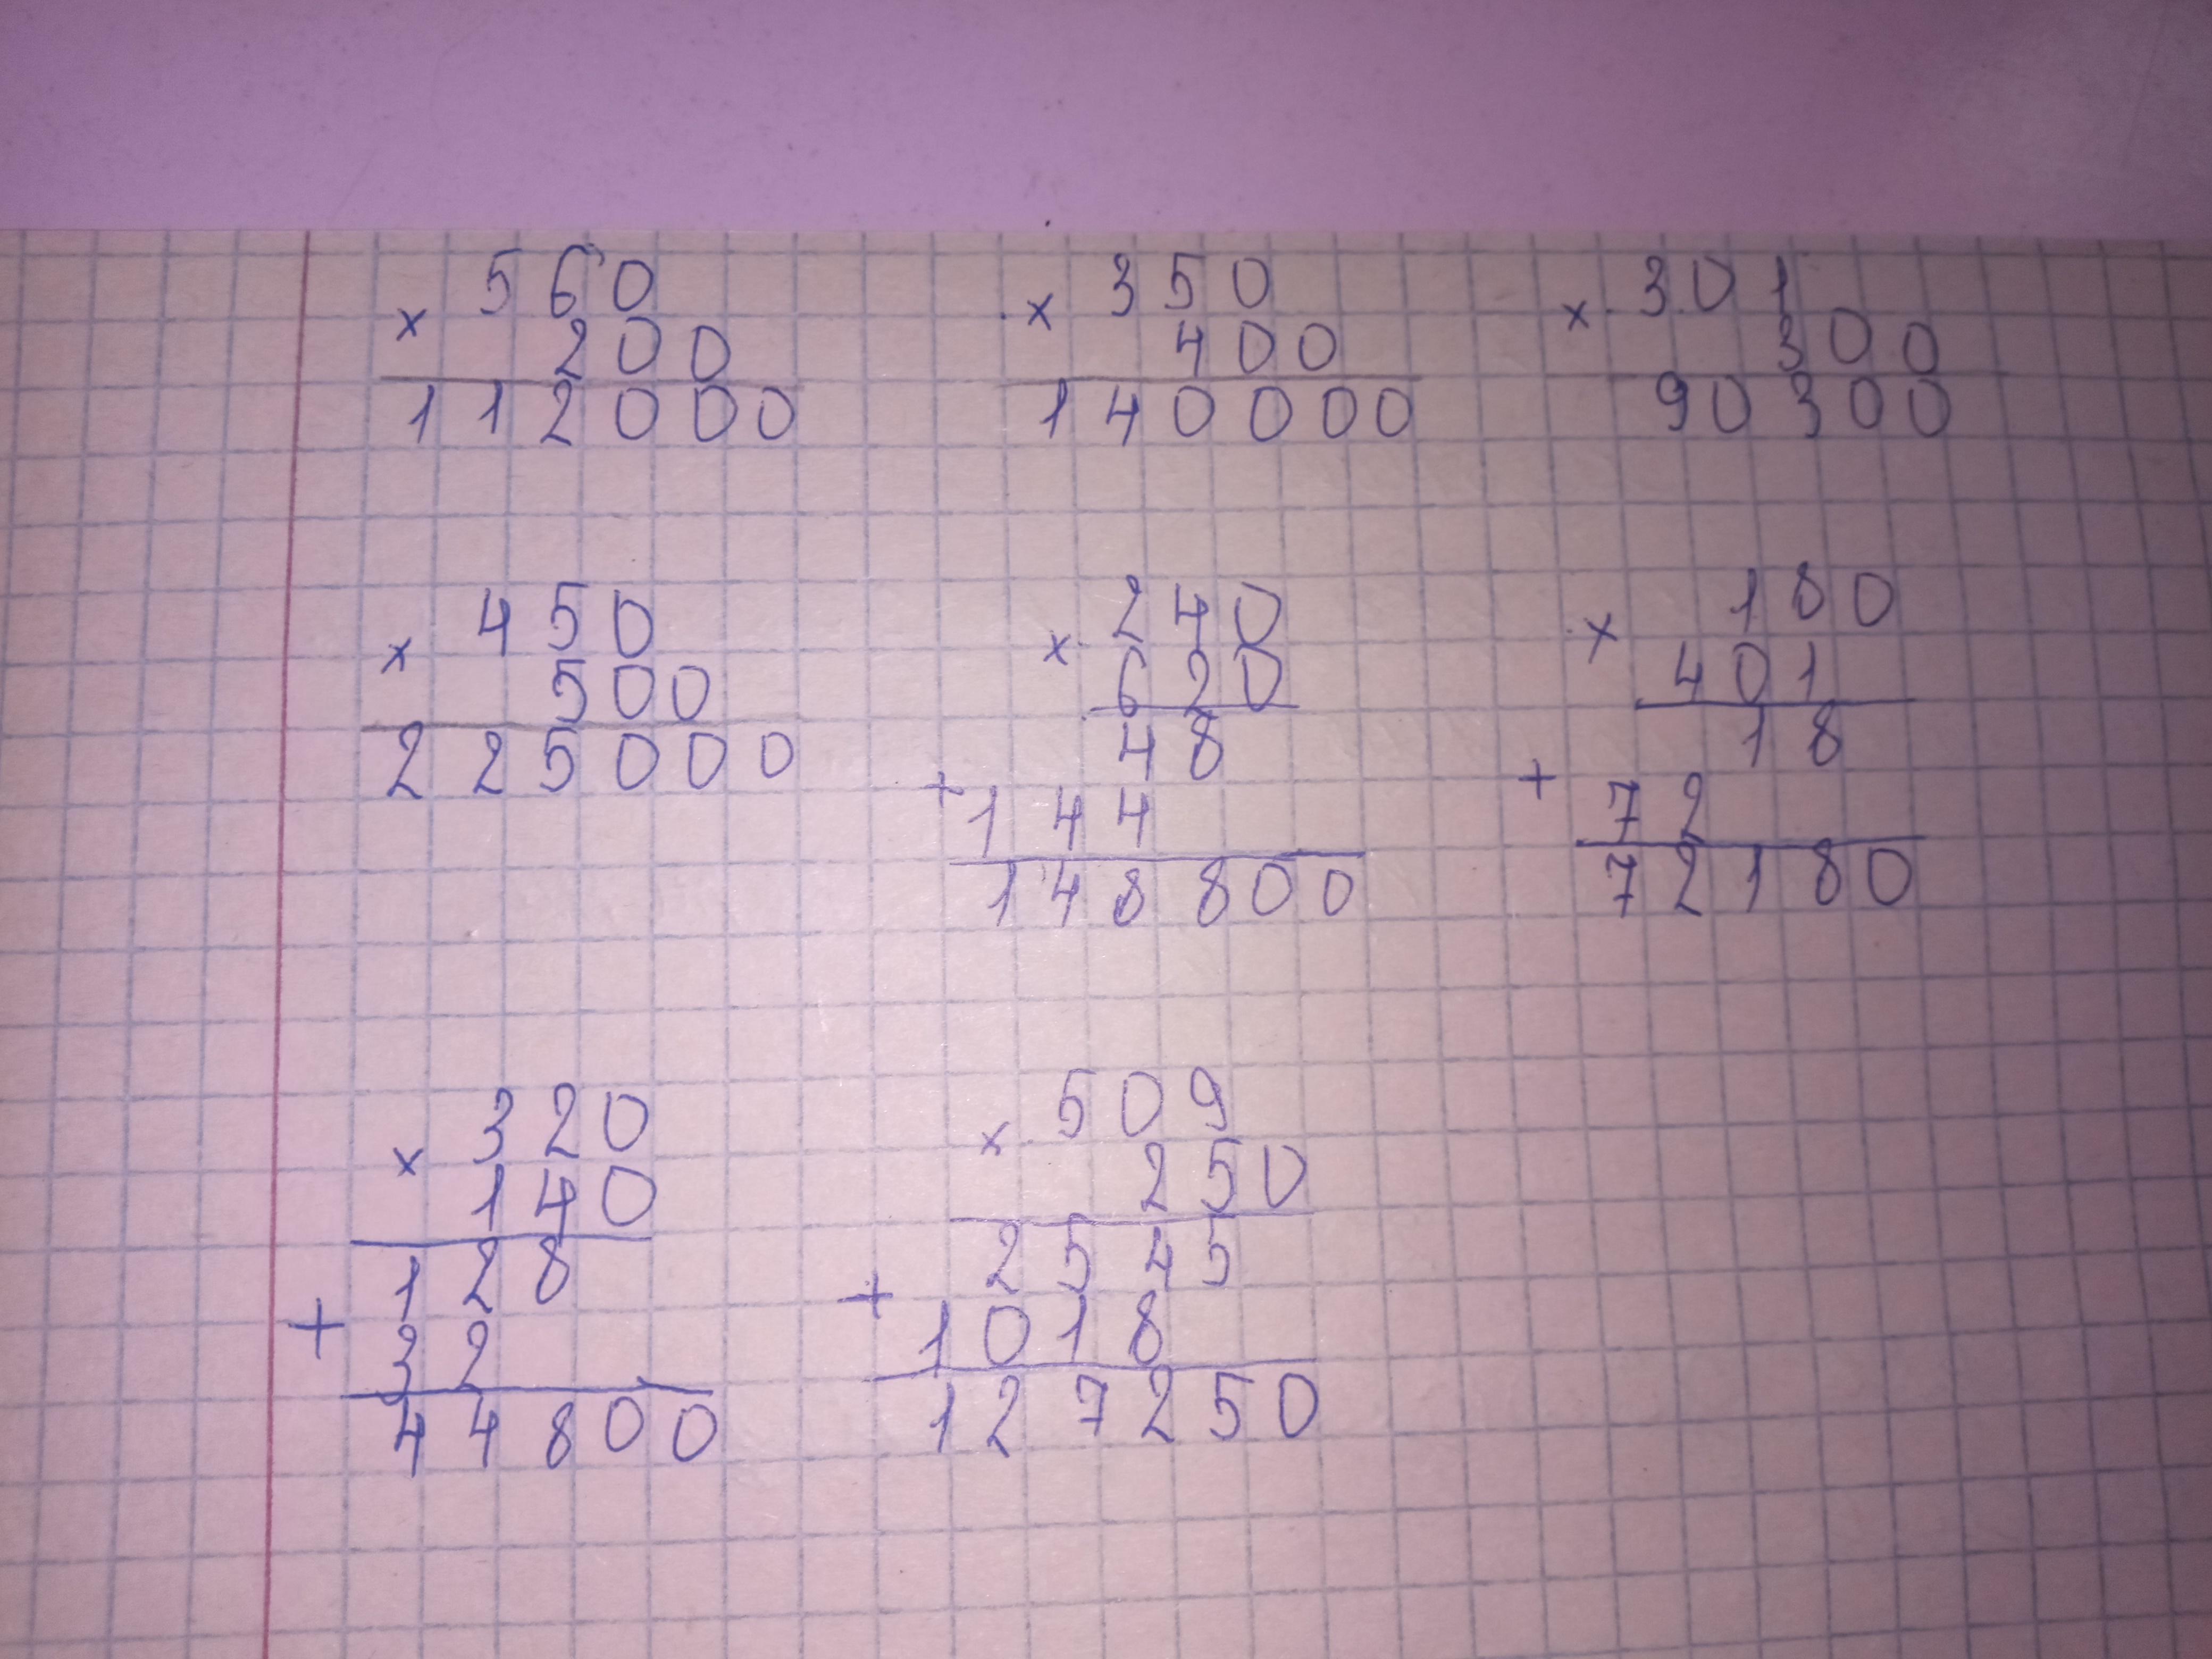 × 560
200
112000
× 350
400
140000
× 301
300
90300
× 450
500
225000
× 240
620
48
+
144
148800
× 180
401
18
+
72
72180
× 320
140
128
+
32
44800
× 509
250
2545
+
1018
127250